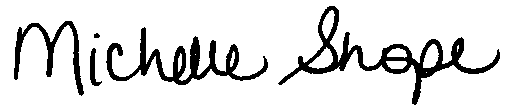 Michelle Shope